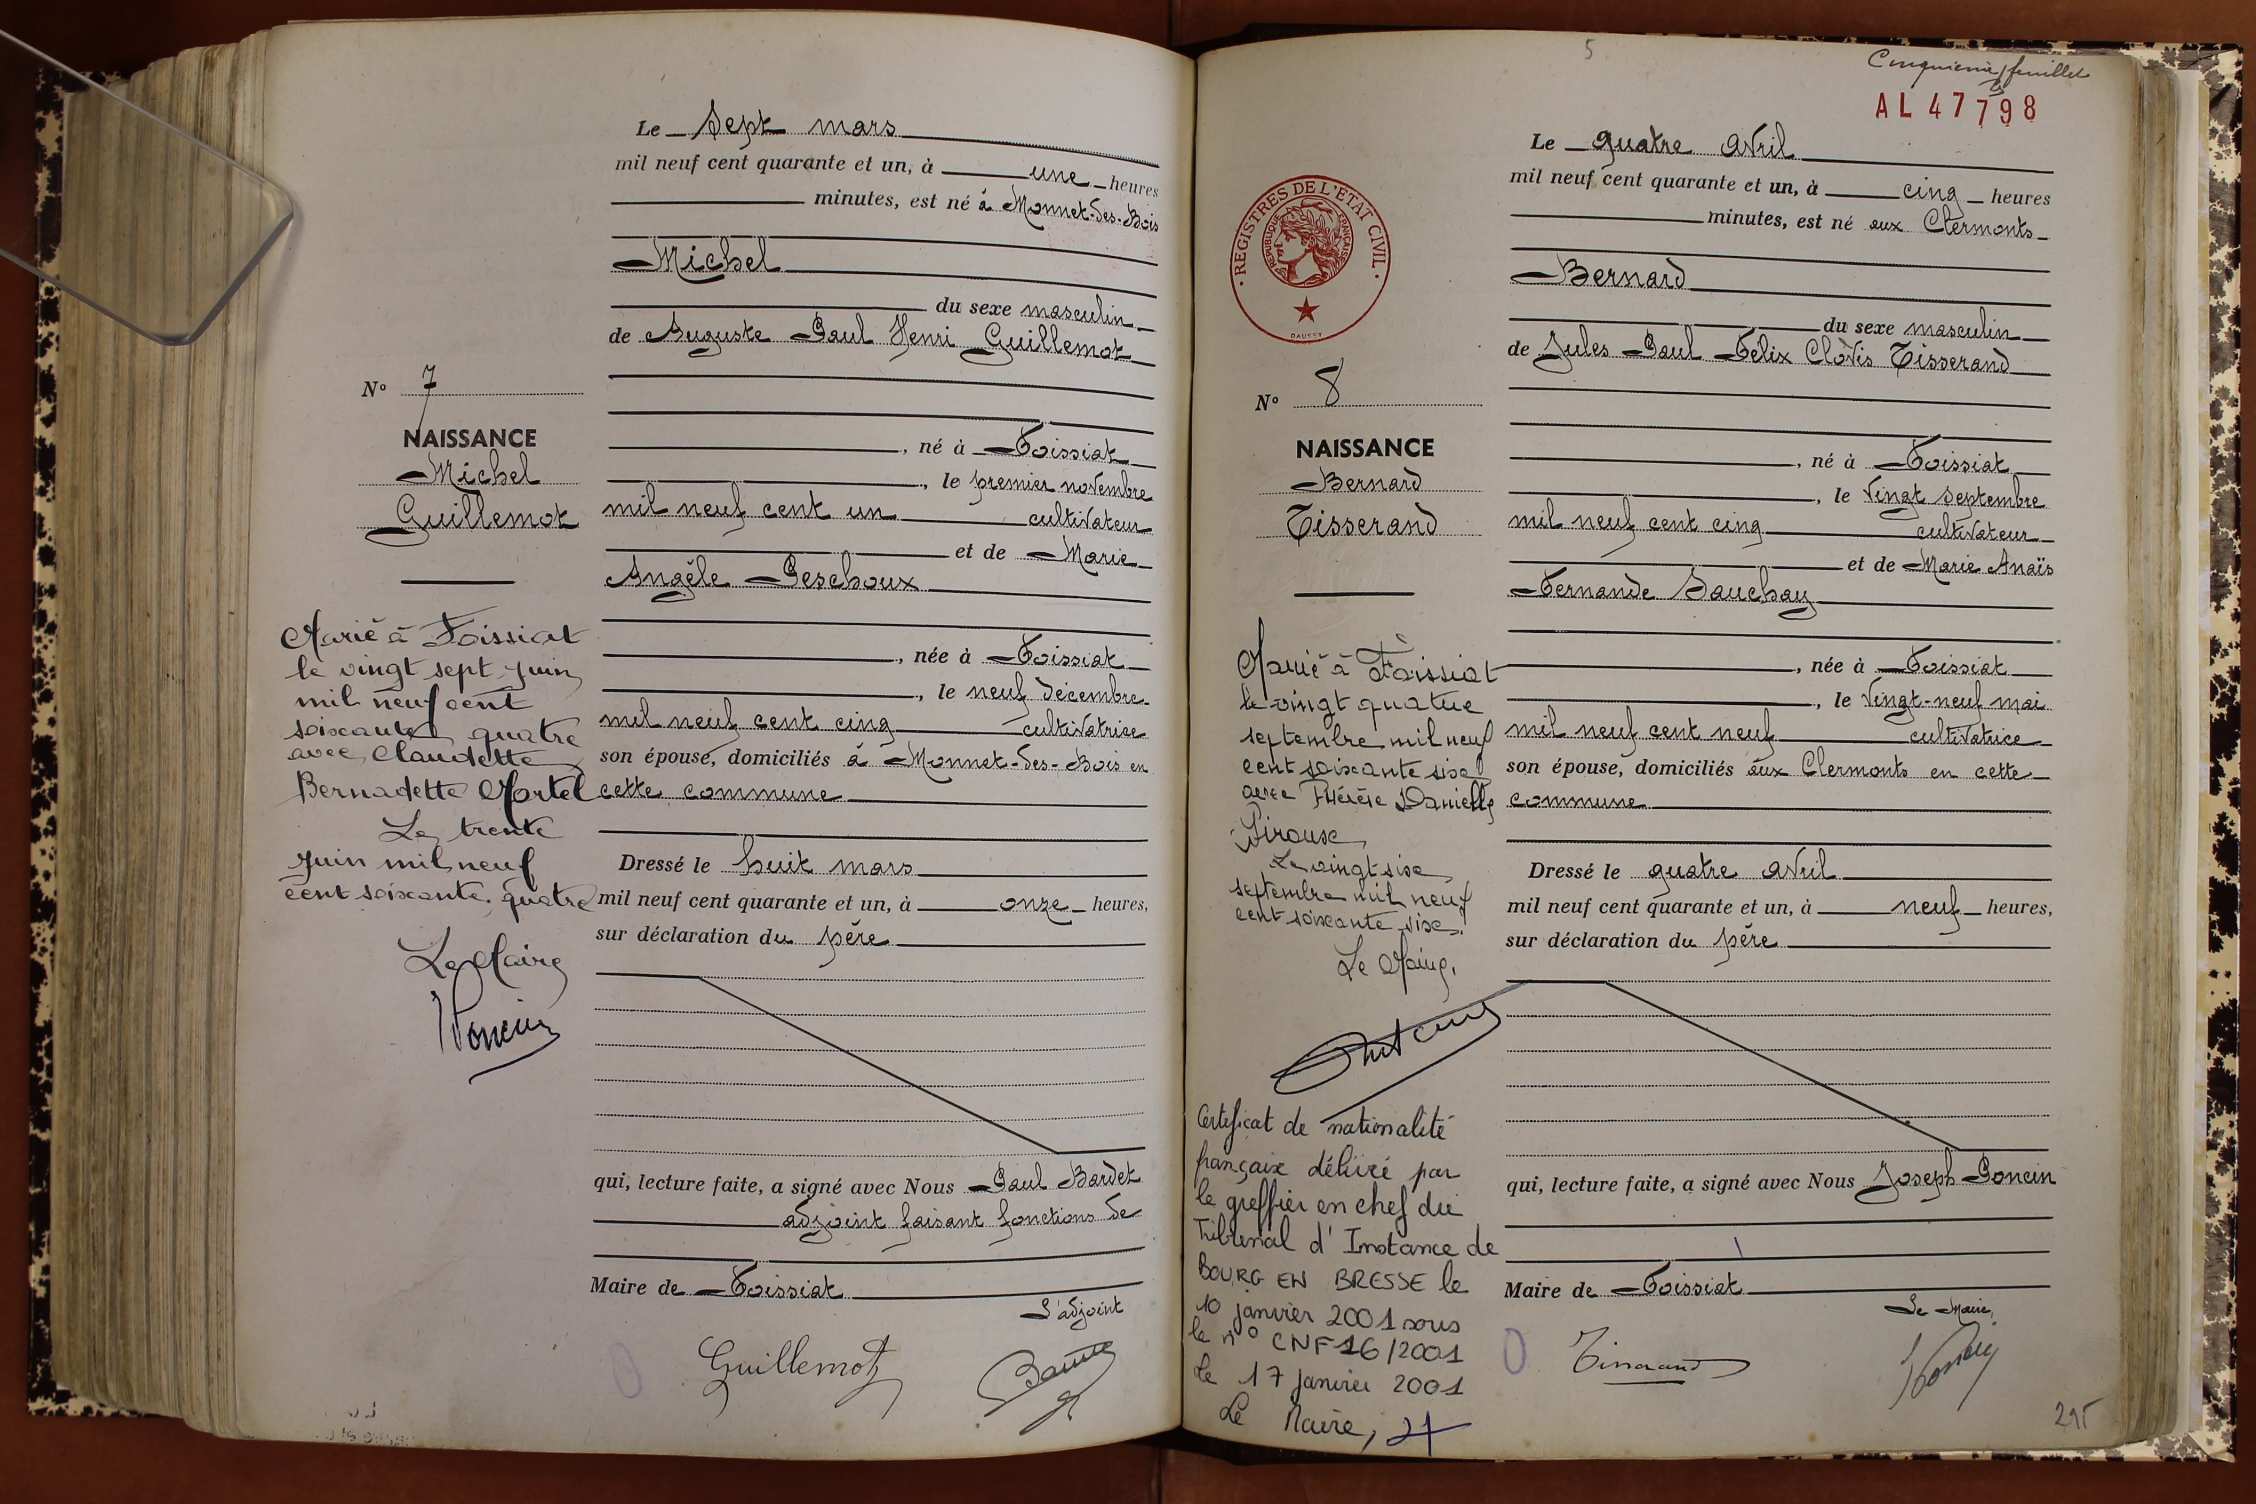 Le Sept mars
mil neuf cent quarante et un, à une heures
minutes, est né à Monnet-des-Bois
Michel
du sexe masculin
de Auguste Paul Henri Guillemot
N° 7
NAISSANCE
Michel
Guillemot
, né à Foissiat
, le premier novembre
mil neuf cent un cultivateur
et de Marie
Angèle Peschoux
, née à Foissiat
, le neuf décembre
mil neuf cent cinq cultivatrice
son épouse, domiciliés à Monnet-des-Bois en
cette commune
Dressé le huit mars
mil neuf cent quarante et un, à onze heures,
sur déclaration du père
qui, lecture faite, a signé avec Nous Paul Bardet
adjoint faisant fonctions de
Maire de Foissiat
L'adjoint
Guillemot
Marié à Foissiat
le vingt sept juin
mil neuf cent
soixante quatre
avec Claudette
Bernadette Mortel
Le trente
juin mil neuf
cent soixante quatre
Le Maire
Poncin
5
Cinquième feuillet
AL 47798
REGISTRES DE L'ETAT CIVIL
REPUBLIQUE FRANÇAISE
Le quatre avril
mil neuf cent quarante et un, à cinq heures
minutes, est né aux Clermonts
Bernard
du sexe masculin
de Jules Paul Félix Clovis Tisserand
N° 8
NAISSANCE
Bernard
Tisserand
, né à Foissiat
, le vingt septembre
mil neuf cent cinq cultivateur
et de Marie Anaïs
Fernande Sauchay
, née à Foissiat
, le vingt-neuf mai
mil neuf cent neuf cultivatrice
son épouse, domiciliés aux Clermonts en cette
commune
Dressé le quatre avril
mil neuf cent quarante et un, à neuf heures,
sur déclaration du père
qui, lecture faite, a signé avec Nous Joseph Poncin
Maire de Foissiat
Le Maire,
Tisserand
Poncin
Marié à Foissiat
le vingt quatre
septembre mil neuf
cent soixante six
avec Thérèse Danielle
Pirouse
Le vingt six
septembre mil neuf
cent soixante six.
Le Maire,
Certificat de nationalité
française délivré par
le greffier en chef du
Tribunal d'Instance de
BOURG EN BRESSE le
10 janvier 2001 sous
le n° CNF 16/2001
Le 17 janvier 2001
Le Maire,
295